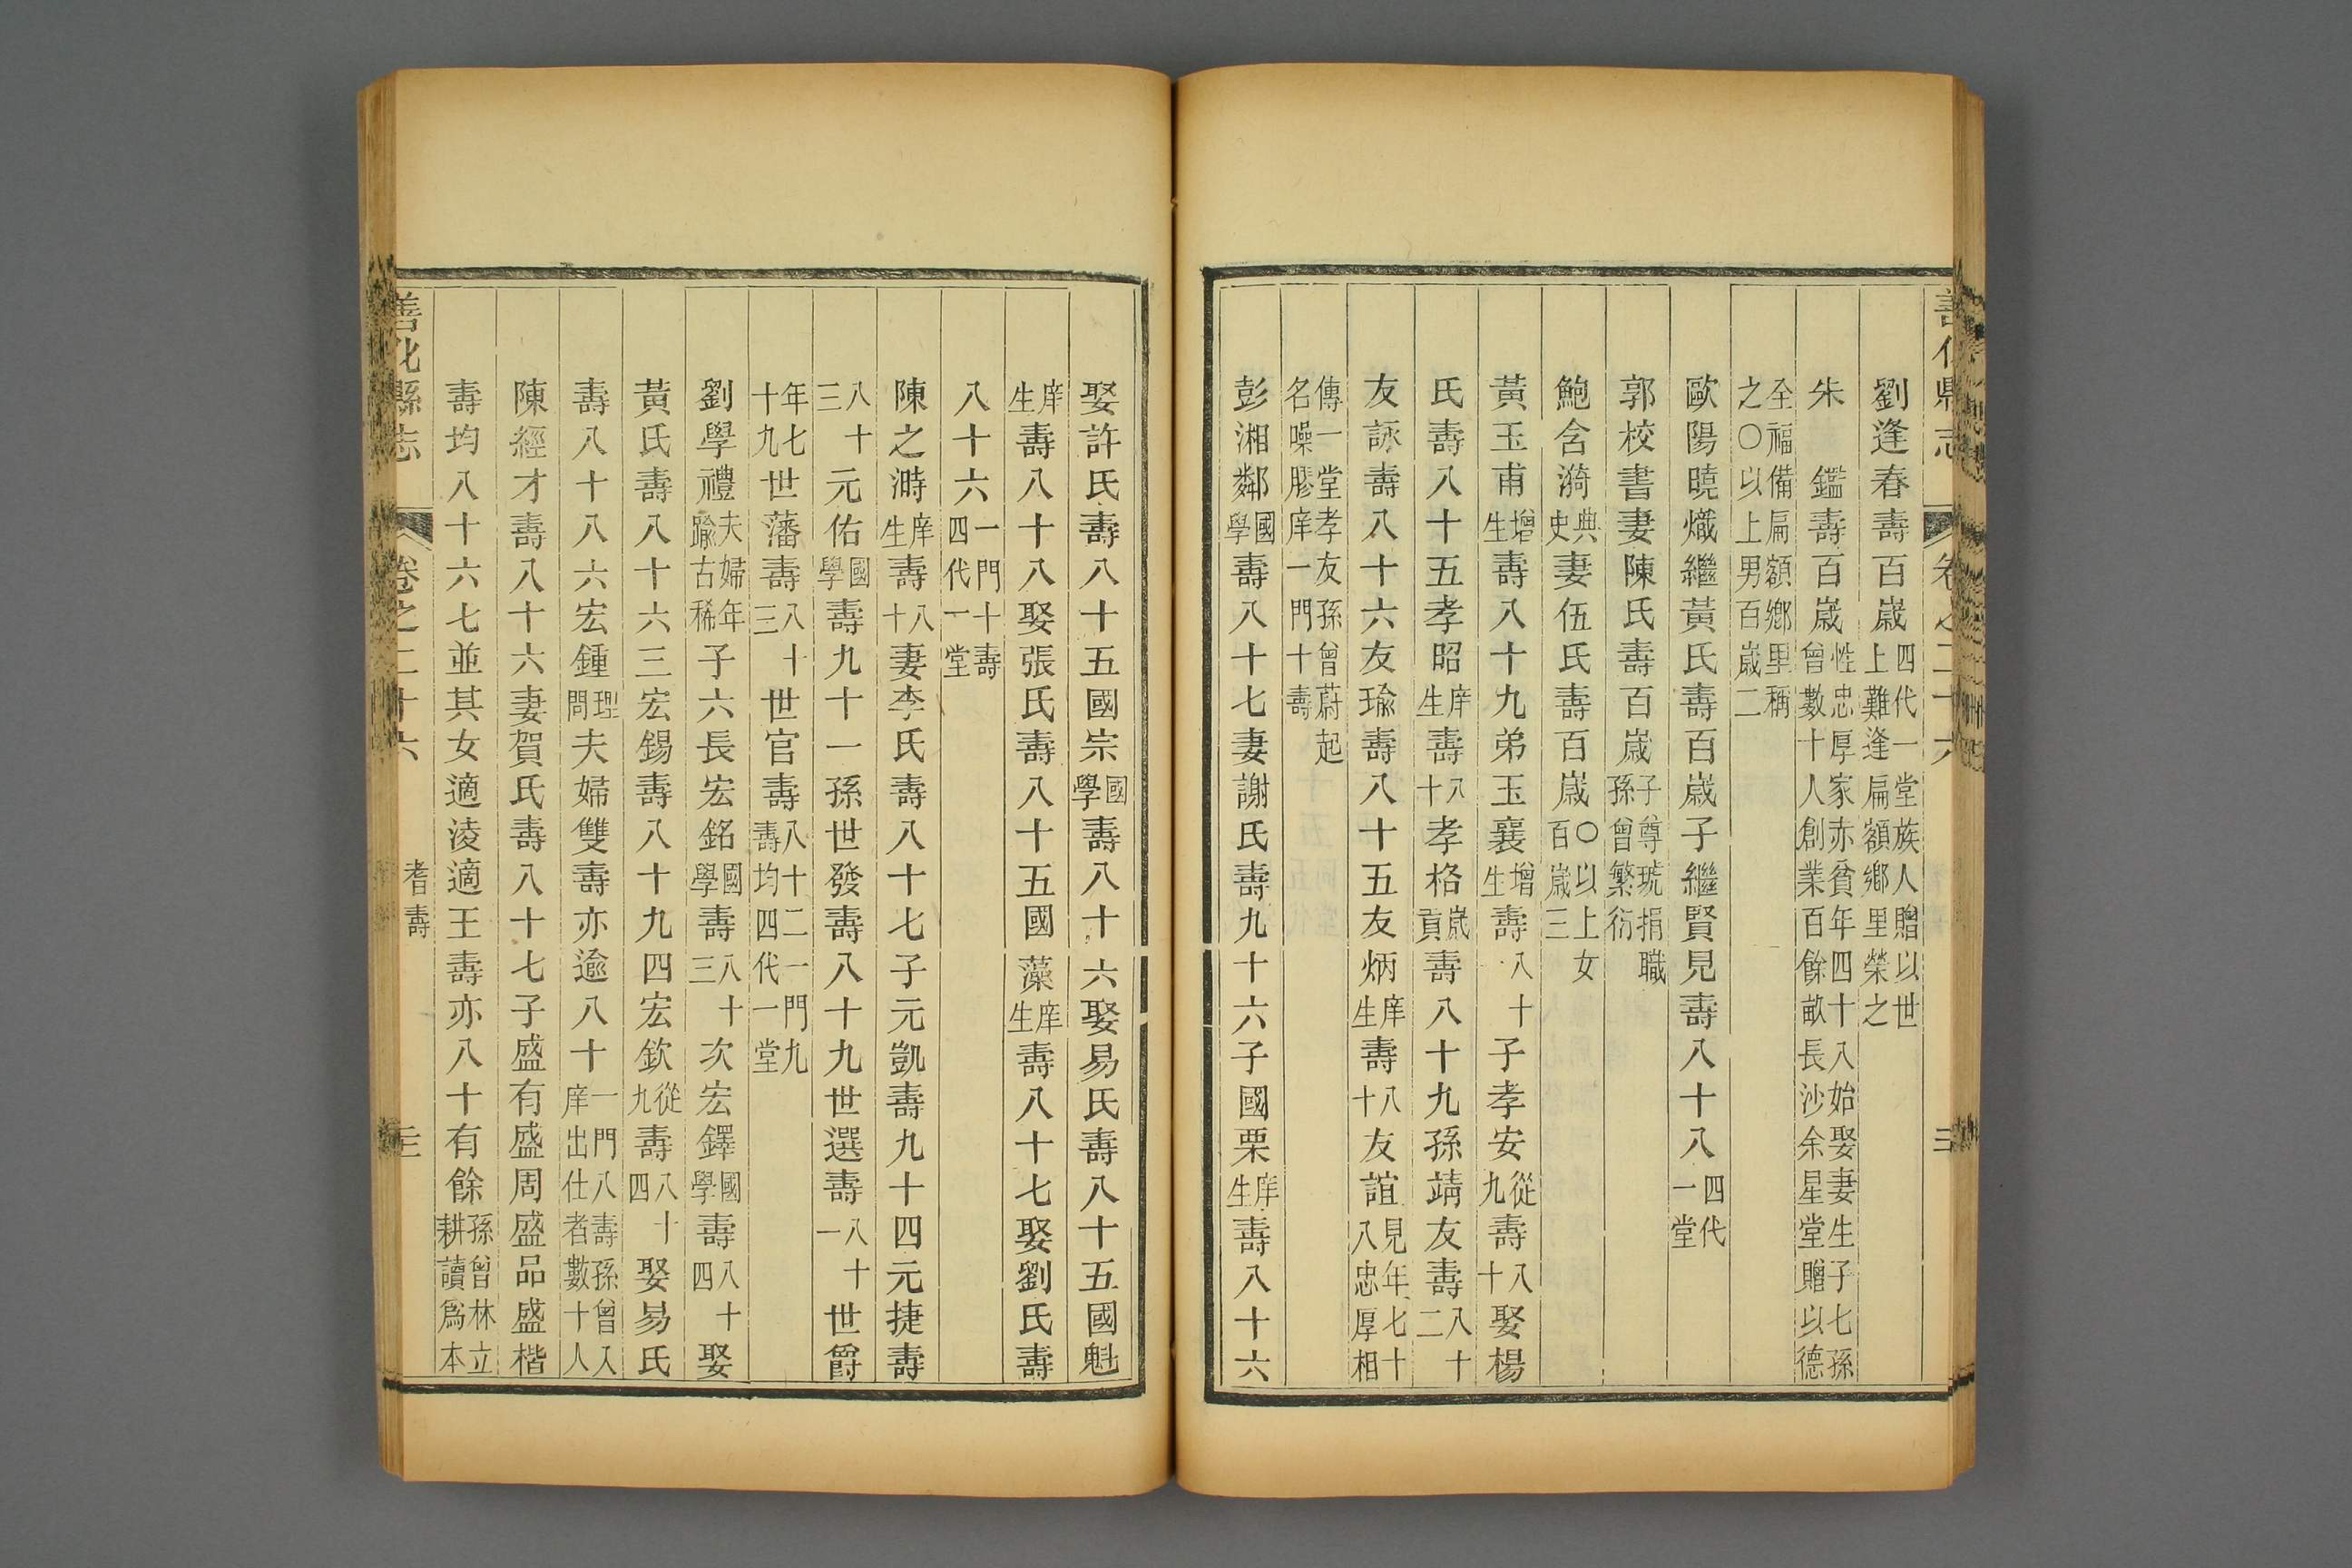 善化縣志 卷之二十六
劉逢春壽百歲四代一堂族人贈以世上難逢扁額鄉里榮之
朱 鑑壽百歲性忠厚家赤貧年四十入始娶妻生子七孫曾數十人創業百餘畝長沙余星堂贈以德
全福備扁額鄉里稱之〇以上男百歲二
歐陽曉熾繼黃氏壽百歲子繼賢見壽八十八四代一堂
郭校書妻陳氏壽百歲子尊琥捐職孫曾繁衍
鮑含漪典史妻伍氏壽百歲〇以上女百歲三
黃玉甫增生壽八十九弟玉襄增生壽八十子孝安從九壽八十娶楊
氏壽八十五孝昭庠生壽八十孝格歲貢壽八十九孫靖友壽八十二
友詠壽八十六友瑜壽八十五友炳庠生壽八十友誼見年七十八忠厚相
傳一堂孝友孫曾蔚起名噪膠庠一門十壽
彭湘鄰國學壽八十七妻謝氏壽九十六子國栗庠生壽八十六
娶許氏壽八十五國宗國學壽八十六娶易氏壽八十五國魁
庠生壽八十八娶張氏壽八十五國藻庠生壽八十七娶劉氏壽
八十六一門十壽四代一堂
陳之溡庠生壽八十妻李氏壽八十七子元凱壽九十四元捷壽
八十三元佑國學壽九十一孫世發壽八十九世選壽八十一世爵
年七十九世藩壽八十三世官壽八十二一門九壽均四代一堂
劉學禮夫婦年踰古稀子六長宏銘國學壽八十三次宏鐸國學壽八十四娶
黃氏壽八十六三宏錫壽八十九四宏欽從九壽八十四娶易氏
壽八十八六宏鍾理問夫婦雙壽亦逾八十一門八壽孫曾入庠出仕者數十人
陳經才壽八十六妻賀氏壽八十七子盛有盛周盛品盛楷
壽均八十六七並其女適淩適王壽亦八十有餘孫曾林立耕讀爲本
善化縣志 卷之二十六 耆壽